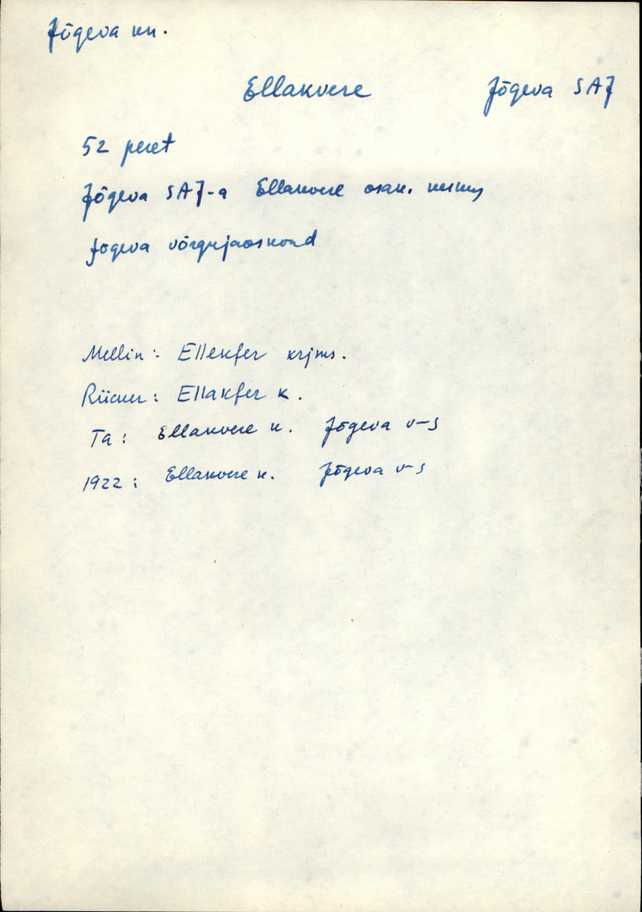 Jõgeva kn.
Ellakvere Jõgeva SAJ
52 peret
Jõgeva SAJ-a Ellakvere osak. keskus
Jõgeva võrgujaoskond
Mellin: Ellekfer krjms.
Rücker: Ellakfer k.
Ta: Ellakvere k. Jõgeva v-s
1922: Ellakvere k. Jõgeva v-s